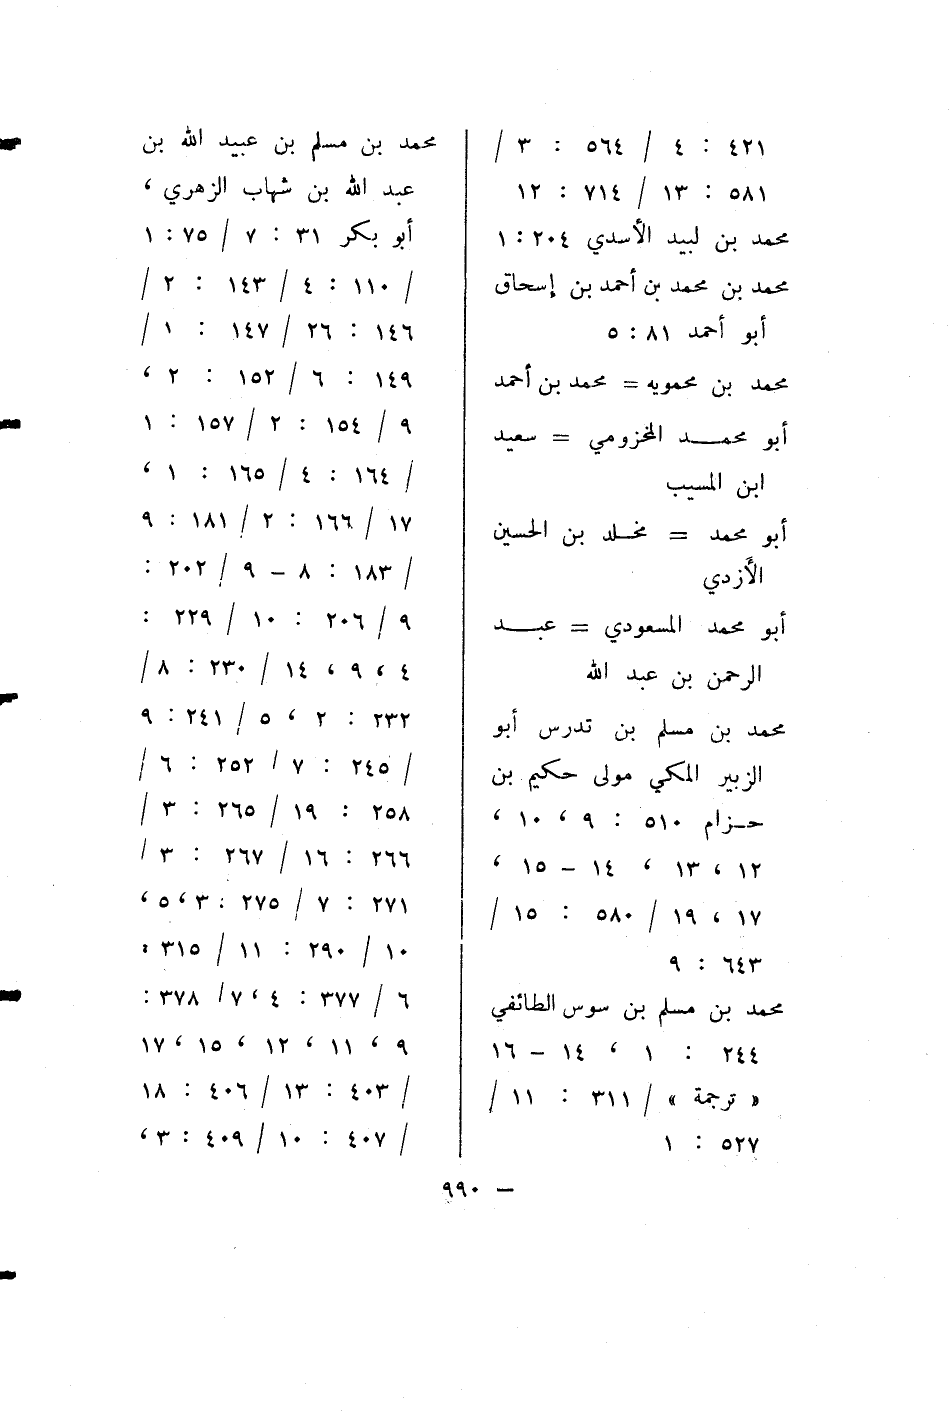 ٤٢١ : ٤ / ٥٦٤ : ٣ /
٥٨١ : ١٣ / ٧١٤ : ١٢
محمد بن لبيد الأسدي ٢٠٤ : ١
محمد بن محمد بن أحمد بن إسحاق
أبو أحمد ٨١ : ٥
محمد بن محمويه = محمد بن أحمد
أبو محمد المخزومي = سعيد
ابن المسيب
أبو محمد = مخلد بن الحسين
الأزدي
أبو محمد المسعودي = عبد
الرحمن بن عبد الله
محمد بن مسلم بن تدرس أبو
الزبير المكي مولى حكيم بن
حزام ٥١٠ : ٩ ، ١٠ ،
١٢ ، ١٣ ، ١٤ – ١٥ ،
١٧ ، ١٩ / ٥٨٠ : ١٥ /
٦٤٣ : ٩
محمد بن مسلم بن سوس الطائفي
٢٤٤ : ١ ، ١٤ – ١٦
« ترجمة » / ٣١١ : ١١ /
٥٢٧ : ١
محمد بن مسلم بن عبيد الله بن
عبد الله بن شهاب الزهري ،
أبو بكر ٣١ : ٧ / ٧٥ : ١
/ ١١٠ : ٤ / ١٤٣ : ٢ /
١٤٦ : ٢٦ / ١٤٧ : ١ /
١٤٩ : ٦ / ١٥٢ : ٢ ،
٩ / ١٥٤ : ٢ / ١٥٧ : ١
/ ١٦٤ : ٤ / ١٦٥ : ١ ،
١٧ / ١٦٦ : ٢ / ١٨١ : ٩
/ ١٨٣ : ٨ – ٩ / ٢٠٢ :
٩ / ٢٠٦ : ١٠ / ٢٢٩ :
٤ ، ٩ ، ١٤ / ٢٣٠ : ٨ /
٢٣٢ : ٢ ، ٥ / ٢٤١ : ٩
/ ٢٤٥ : ٧ / ٢٥٢ : ٦ /
٢٥٨ : ١٩ / ٢٦٥ : ٣ /
٢٦٦ : ١٦ / ٢٦٧ : ٣ /
٢٧١ : ٧ / ٢٧٥ : ٣ ، ٥ ،
١٠ / ٢٩٠ : ١١ / ٣١٥ :
٦ / ٣٧٧ : ٤ ، ٧ / ٣٧٨ :
٩ ، ١١ ، ١٢ ، ١٥ ، ١٧
/ ٤٠٣ : ١٣ / ٤٠٦ : ١٨
/ ٤٠٧ : ١٠ / ٤٠٩ : ٣ ،
– ٩٩٠